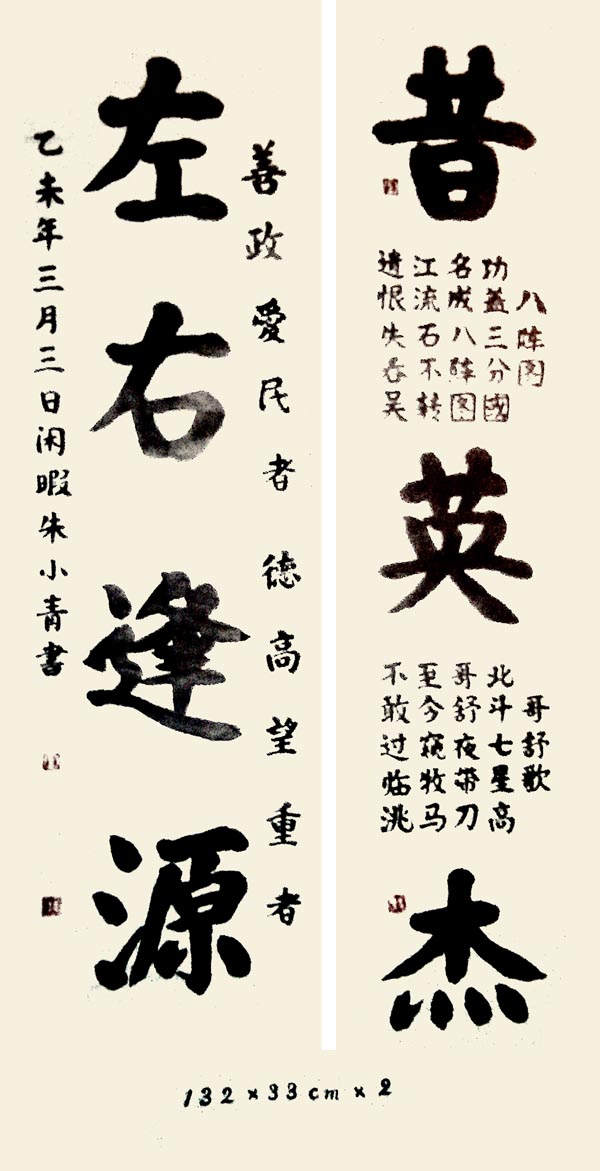 昔
八阵图
功盖三分國
名成八阵图
江流石不转
遗恨失吞吴
英
哥舒歌
北斗七星高
哥舒夜带刀
至今窥牧马
不敢过临洮
杰
善政愛民者德高望重者
左右逢源
乙未年三月三日闲暇朱小青書
132×33cm×2